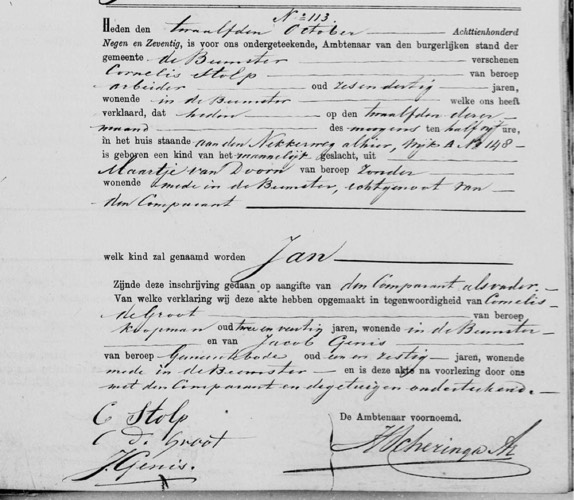 No 113.
Heden den twaalfden October Achttienhonderd
Negen en Zeventig, is voor ons ondergeteekende, Ambtenaar van den burgerlijken stand der
gemeente de Beemster verschenen
Cornelis Stolp van beroep
arbeider oud zes en dertig jaren,
wonende in de Beemster welke ons heeft
verklaard, dat heden op den twaalfden dezer
maand des morgens ten half vijf ure,
in het huis staande aan den Nekkerweg alhier, wijk A No 148
is geboren een kind van het mannelijk geslacht, uit
Maartje van Doorn van beroep zonder
wonende mede in de Beemster, echtgenoot van
den Comparant
welk kind zal genaamd worden Jan
Zijnde deze inschrijving gedaan op aangifte van den Comparant als vader.
Van welke verklaring wij deze akte hebben opgemaakt in tegenwoordigheid van Cornelis
de Groot van beroep
koopman oud twee en veertig jaren, wonende in de Beemster
en van Jacob Genis
van beroep Gemeentebode oud een en zestig jaren, wonende
mede in de Beemster en is deze akte na voorlezing door ons
met den Comparant en de getuigen onderteekend.
C Stolp
C de Groot
J. Genis.
De Ambtenaar voornoemd.
Scheringa Az